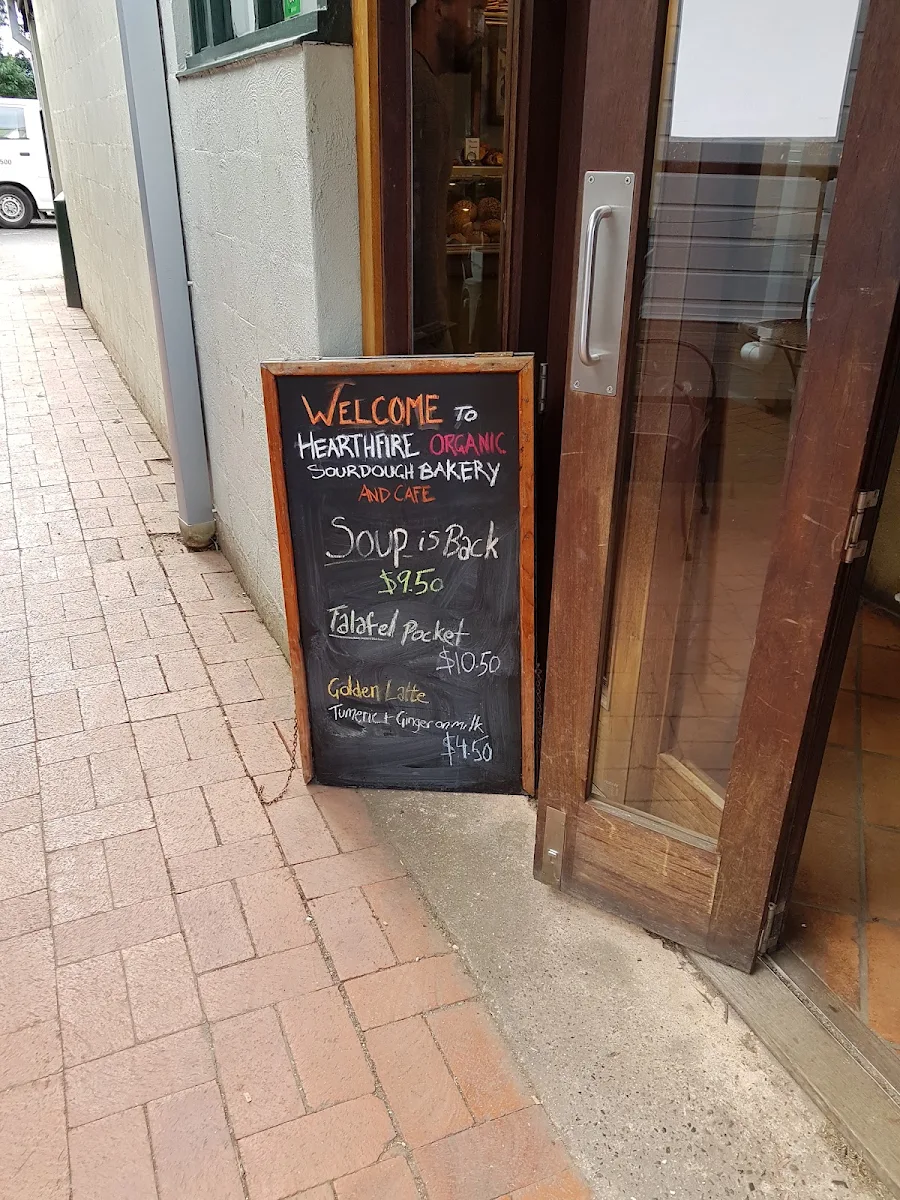 WELCOME TO
HEARTHFIRE ORGANIC
SOURDOUGH BAKERY
AND CAFE
Soup is Back
$9.50
Falafel Pocket
$10.50
Golden Latte
Tumeric + Ginger on milk
$4.50
500